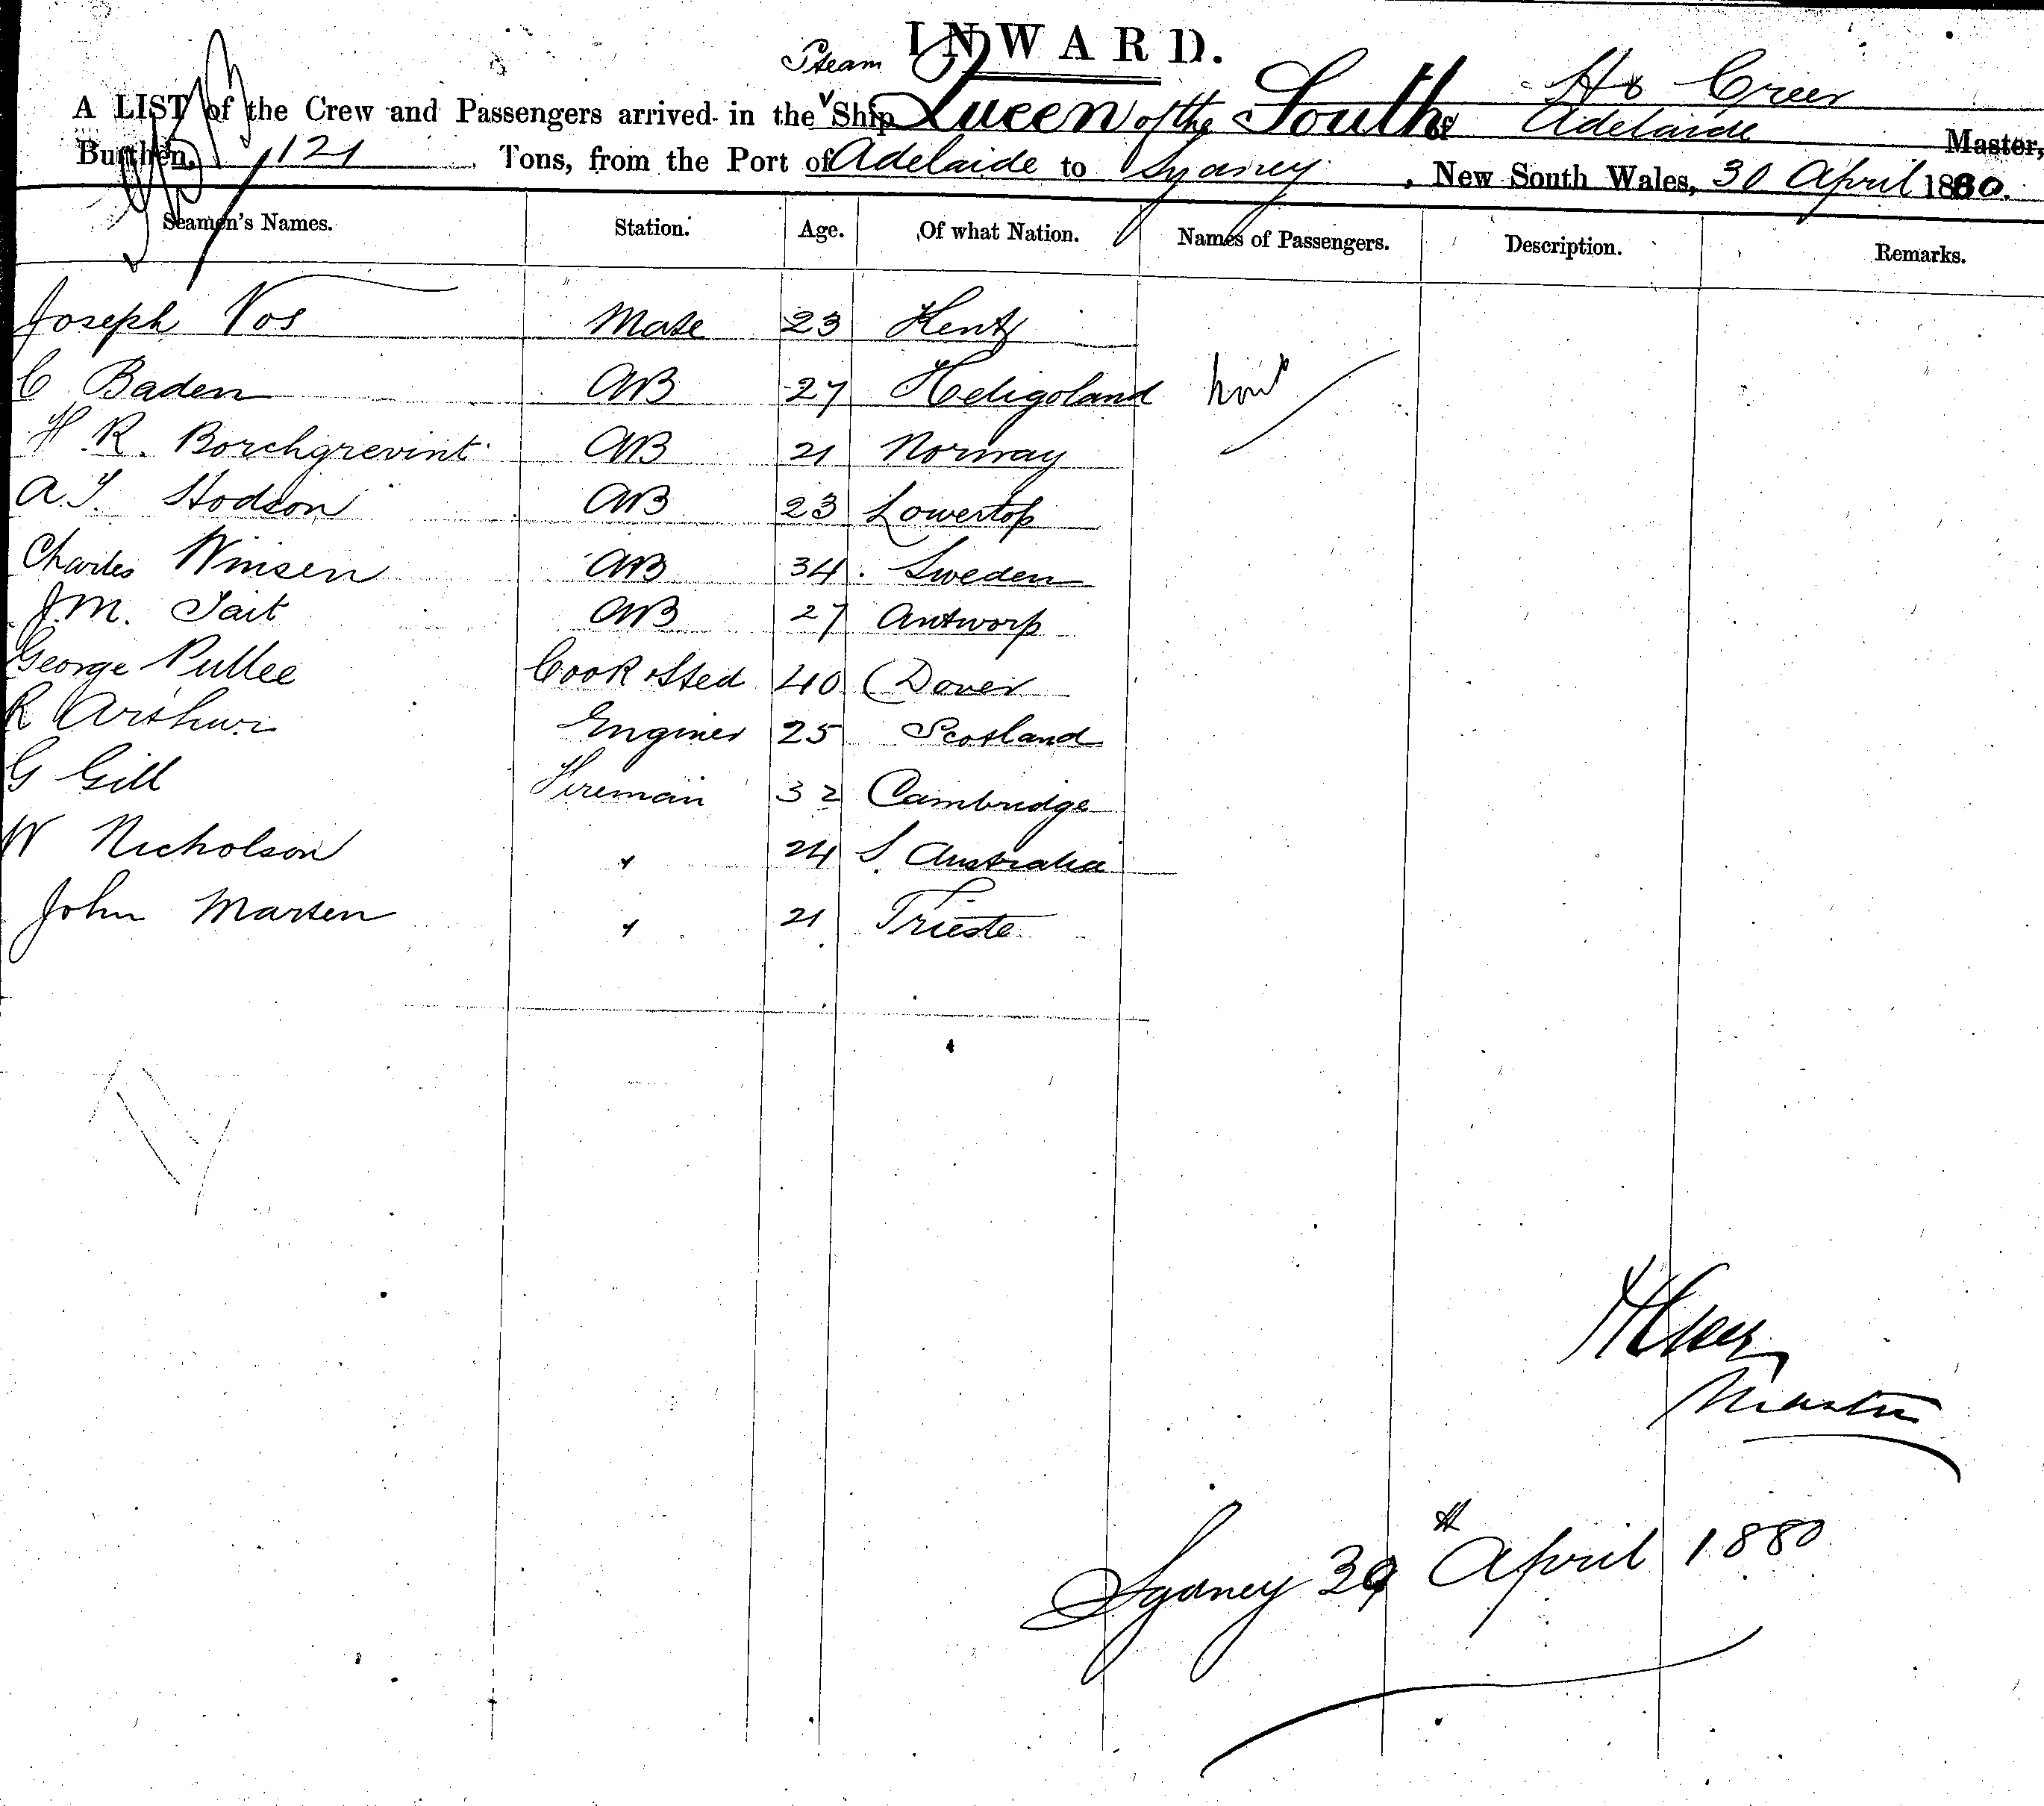 INWARD.
Steam
A LIST of the Crew and Passengers arrived in the Ship Queen of the South of Adelaide H Creer Master,
Burthen, 121 Tons, from the Port of Adelaide to Sydney, New South Wales, 30 April 1880.
Seamen's Names. Station. Age. Of what Nation. Names of Passengers. Description. Remarks.
Joseph Vos Mate 23 Kent
C Baden AB 27 Heligoland
H. R. Borchgrevint AB 21 Norway
A. Hodson AB 23 Lowertop
Charles Winsen AB 34 Sweden
J. M. Tait AB 27 Antworp
George Pullee Cook Sted 40 Dover
R Arthur Enginer 25 Scotland
G Gill Fireman 32 Cambridge
W Nicholson " 24 S. Australia
John Marten " 21 Trieste
H Creer
Master
Sydney 30th April 1880